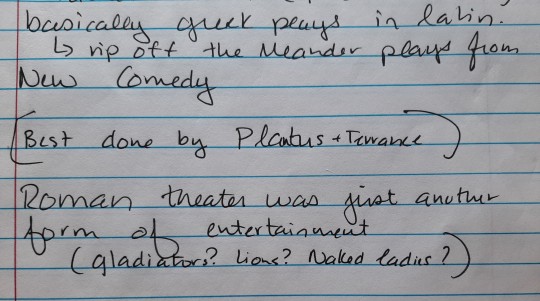 basically greek peays in latin.
↳ rip off the Meander plays from
New Comedy
[Best done by Plautus + Terrance]
Roman theater was just another
form of entertainment
(gladiators? Lions? Naked ladies?)